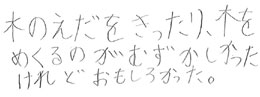 木のえだをきったり、木を
めくるのがむずかしかった
けれどおもしろかった。